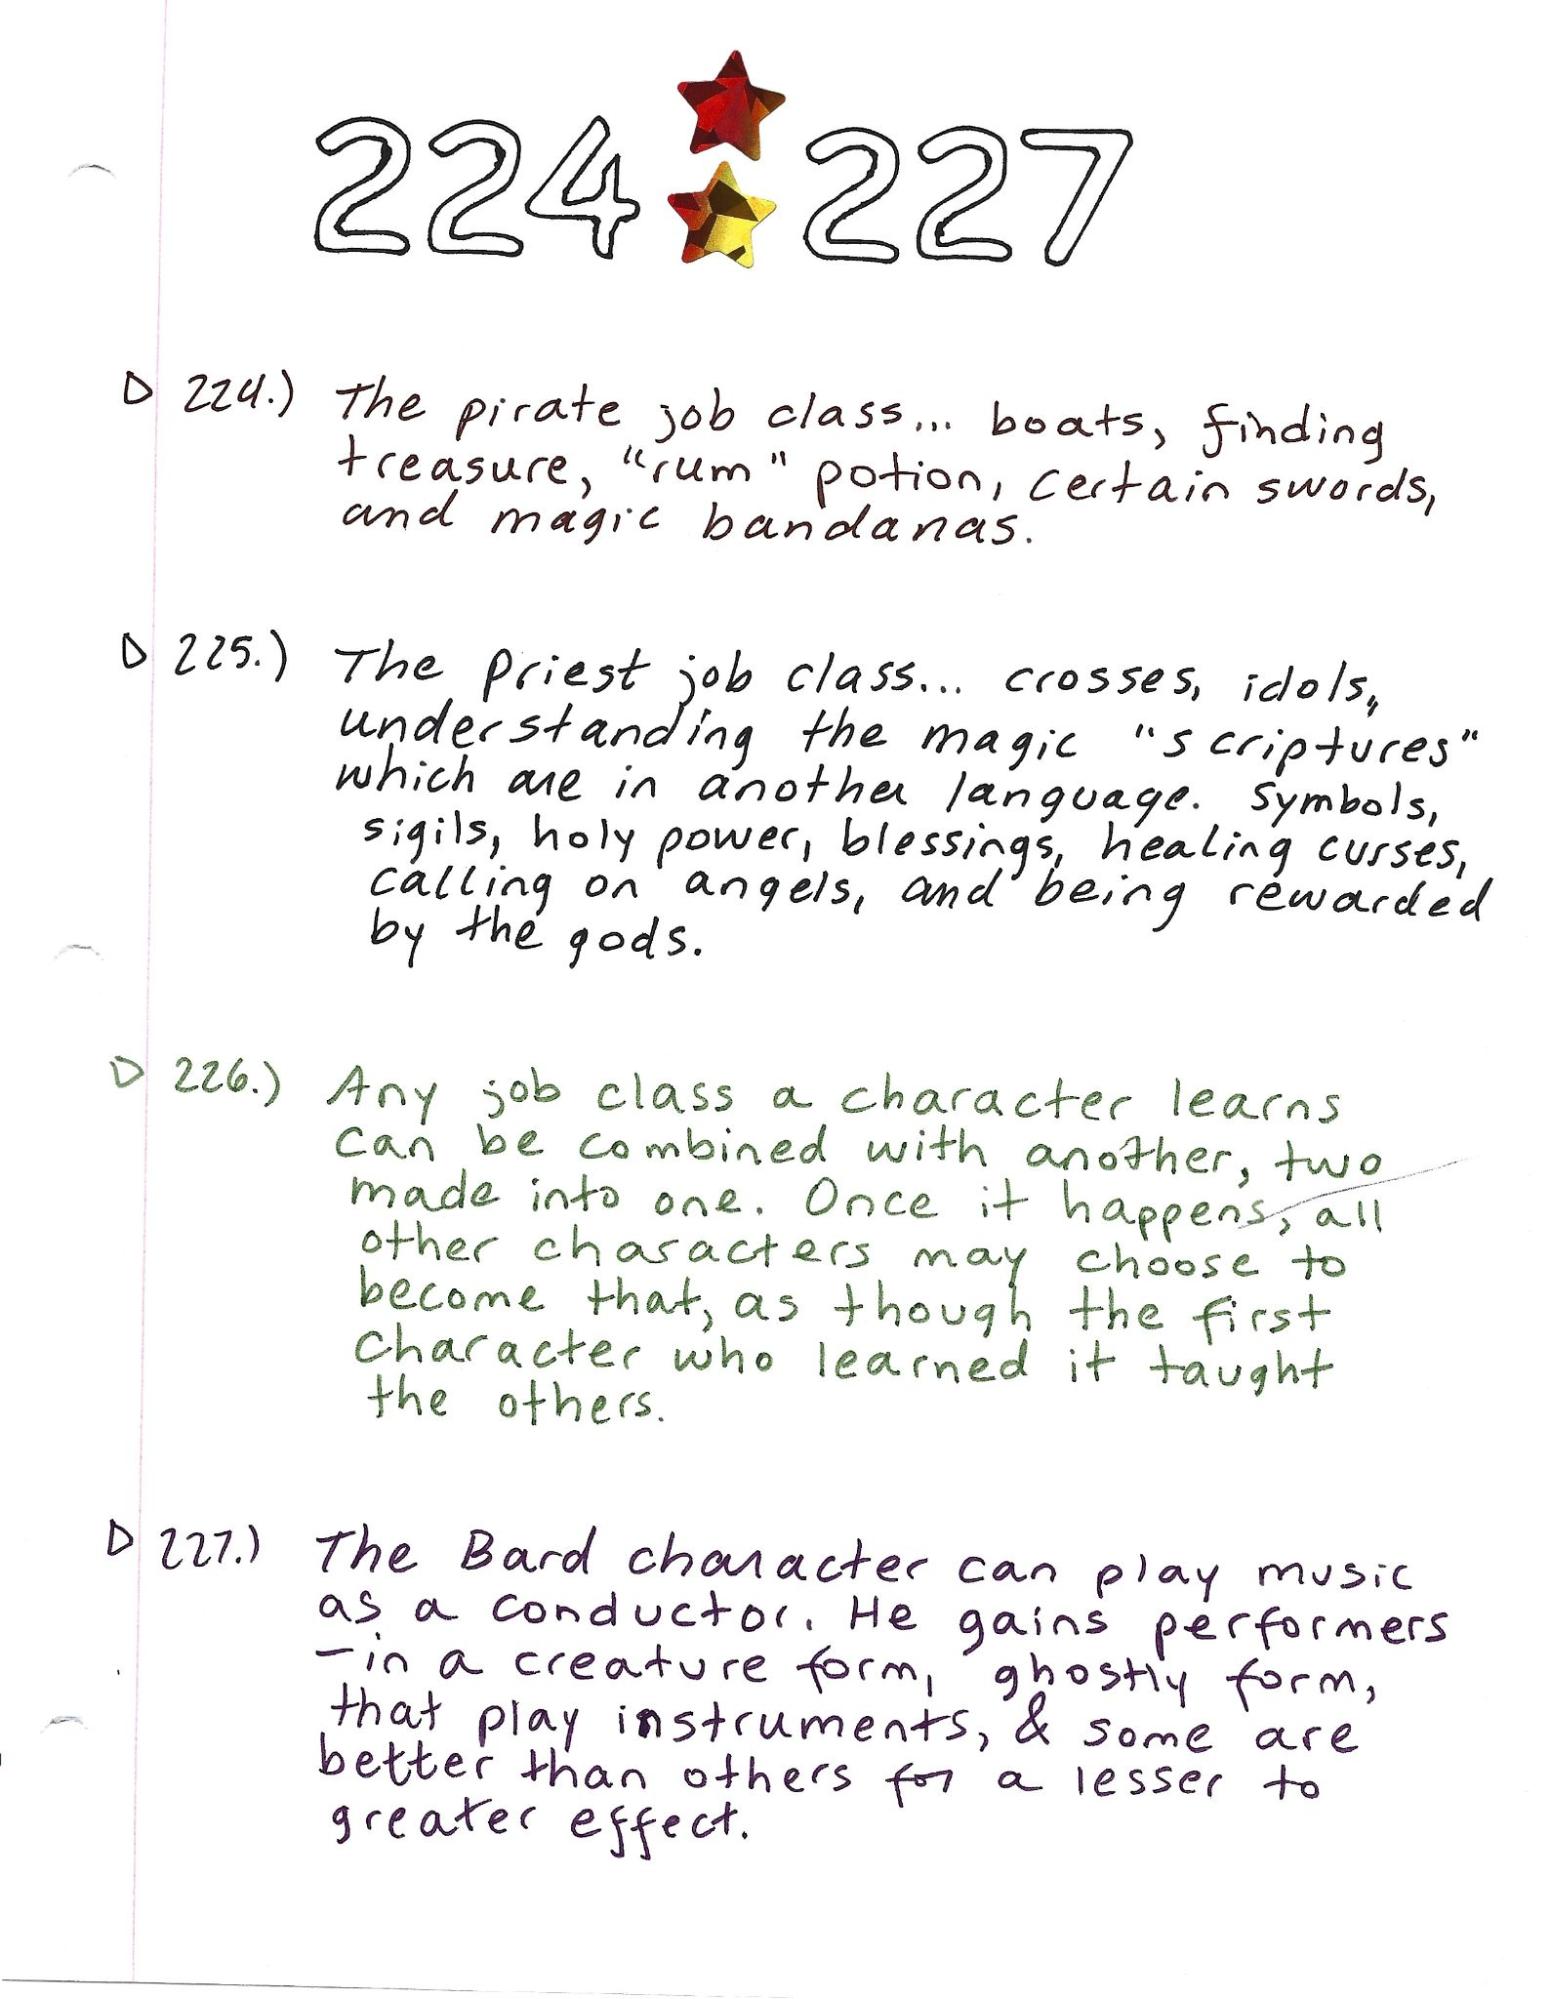 224 227
D 224.) The pirate job class... boats, finding
treasure, "rum" potion, certain swords,
and magic bandanas.
D 225.) The Priest job class... crosses, idols,
understanding the magic "scriptures"
which are in another language. Symbols,
sigils, holy power, blessings, healing curses,
calling on angels, and being rewarded
by the gods.
D 226.) Any job class a character learns
can be combined with another, two
made into one. Once it happens, all
other characters may choose to
become that, as though the first
character who learned it taught
the others.
D 227.) The Bard character can play music
as a conductor. He gains performers
- in a creature form, ghostly form,
that play instruments, & some are
better than others for a lesser to
greater effect.